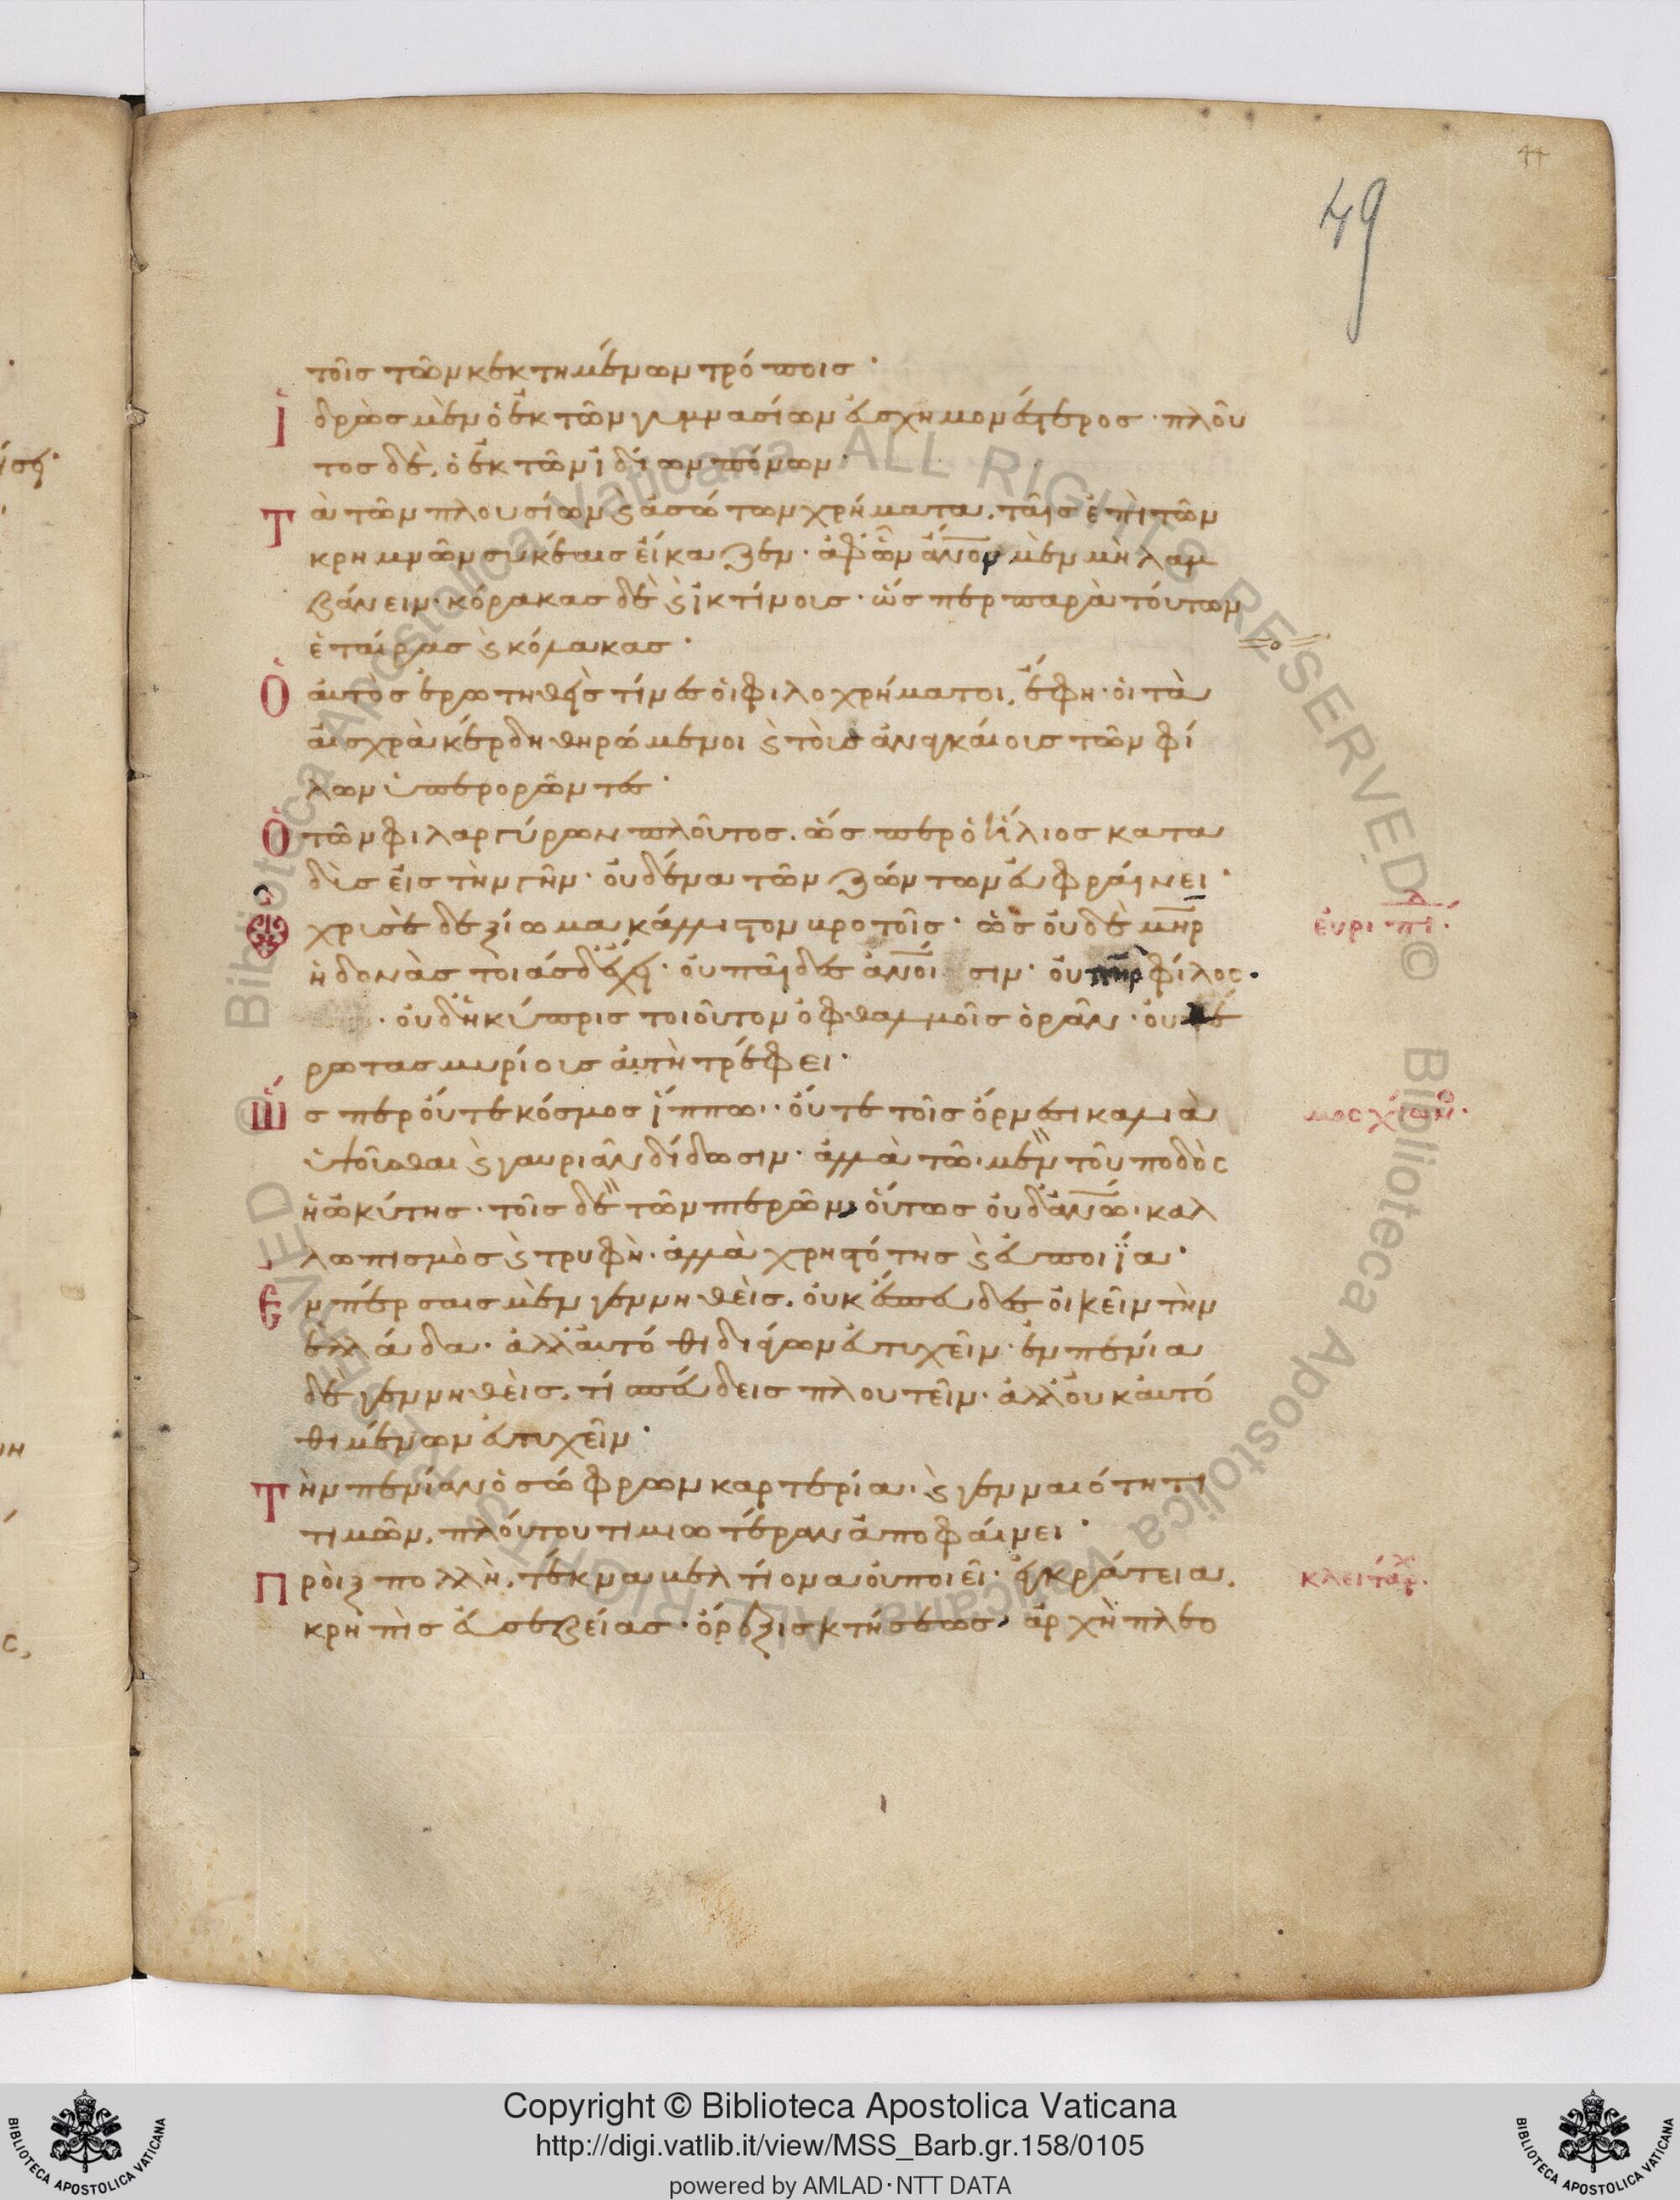 44
49
τοῖς τῶν κεκτημένων τρόποις·
Ἱδρὼς μὲν ὁ ἐκ τῶν γυμνασίων εὐσχημονέστερος· πλοῦ
τος δὲ, ὁ ἐκ τῶν ἰδίων πόνων·
Τὰ τῶν πλουσίων ϗ ἀσώτων χρήματα, ταῖς ἐπὶ τῶν
κρημνῶν συκέαις εἴκαζεν· ἀφ' ὧν ἄνον μὲν μὴ λαμ
βάνειν· κόρακας δὲ ϗ ἰκτίνους· ὥσπερ παρὰ τούτων
ἑταίρας ϗ κόλακας·
Ὁ αὐτὸς ἐρωτηθεὶς τίνες οἱ φιλοχρήματοι, ἔφη· οἱ τὰ
αἰσχρὰ κέρδη θηρώμενοι ϗ τοὺς ἀναγκαίους τῶν φί
λων ὑπερορῶντες·
Ὁ τῶν φιλαργύρων πλοῦτος, ὥσπερ ὁ ἥλιος κατα
δὺς εἰς τὴν γῆν· οὐδένα τῶν ζώντων εὐφραίνει·
Ὦ χρυσὲ δεξίωμα κάλλιστον βροτοῖς· ὡς οὐδὲ μηρ
ἡδονὰς τοιάσδ' ἔχει· οὐ παῖδες ἀνοίσιν· οὐ πηρ φίλος·
· οὐδ' ἡ κύπρις τοιοῦτον ὀφθαλμοῖς ὁρᾶν· οὐ
ρωτας μυρίους αὐτὴ τρέφει·
Ὥσπερ οὔτε κόσμος ἵππω· οὔτε τοῖς ὄρνεσι καλιὰ
ὑψοῦσθαι ϗ γαυριᾶν δίδωσιν· ἀλλὰ τῶ μὲν τοῦ ποδὸς
ἡ ὠκύτης· τοῖς δὲ τῶν πτερῶν, οὕτως οὐδ' ἄνω· καλ
λωπισμὸς ϗ τρυφὴ· ἀλλὰ χρηστότης ϗ εὐποιΐα·
Ἐν πέρσαις μὲν γεννηθεὶς, οὐκ ἔσπευδες οἰκεῖν τὴν
ἑλλάδα· ἀλλ' αὐτόθι διάγων εὐτυχεῖν· ἐν πενία
δὲ γεννηθεὶς, τί σπεύδεις πλουτεῖν· ἀλλ' οὐκ αὐτό
θι μένων εὐτυχεῖν·
Τὴν πενίαν ὁ σώφρων καρτερία· ϗ γενναιότητι
τιμῶν, πλούτου τιμιωτέραν ἀποφαίνει·
Προὶξ πολλὴ, τέκνα βελτίονα οὐ ποιεῖ· ἐγκράτεια,
κρηπὶς εὐσεβείας· ὄρεξις κτήσεως, ἀρχὴ πλεο
εὐριπί.
μοσχίων·
κλειτάρχ.
Copyright © Biblioteca Apostolica Vaticana
http://digi.vatlib.it/view/MSS_Barb.gr.158/0105
powered by AMLAD·NTT DATA
BIBLIOTECA APOSTOLICA VATICANA
BIBLIOTECA APOSTOLICA VATICANA